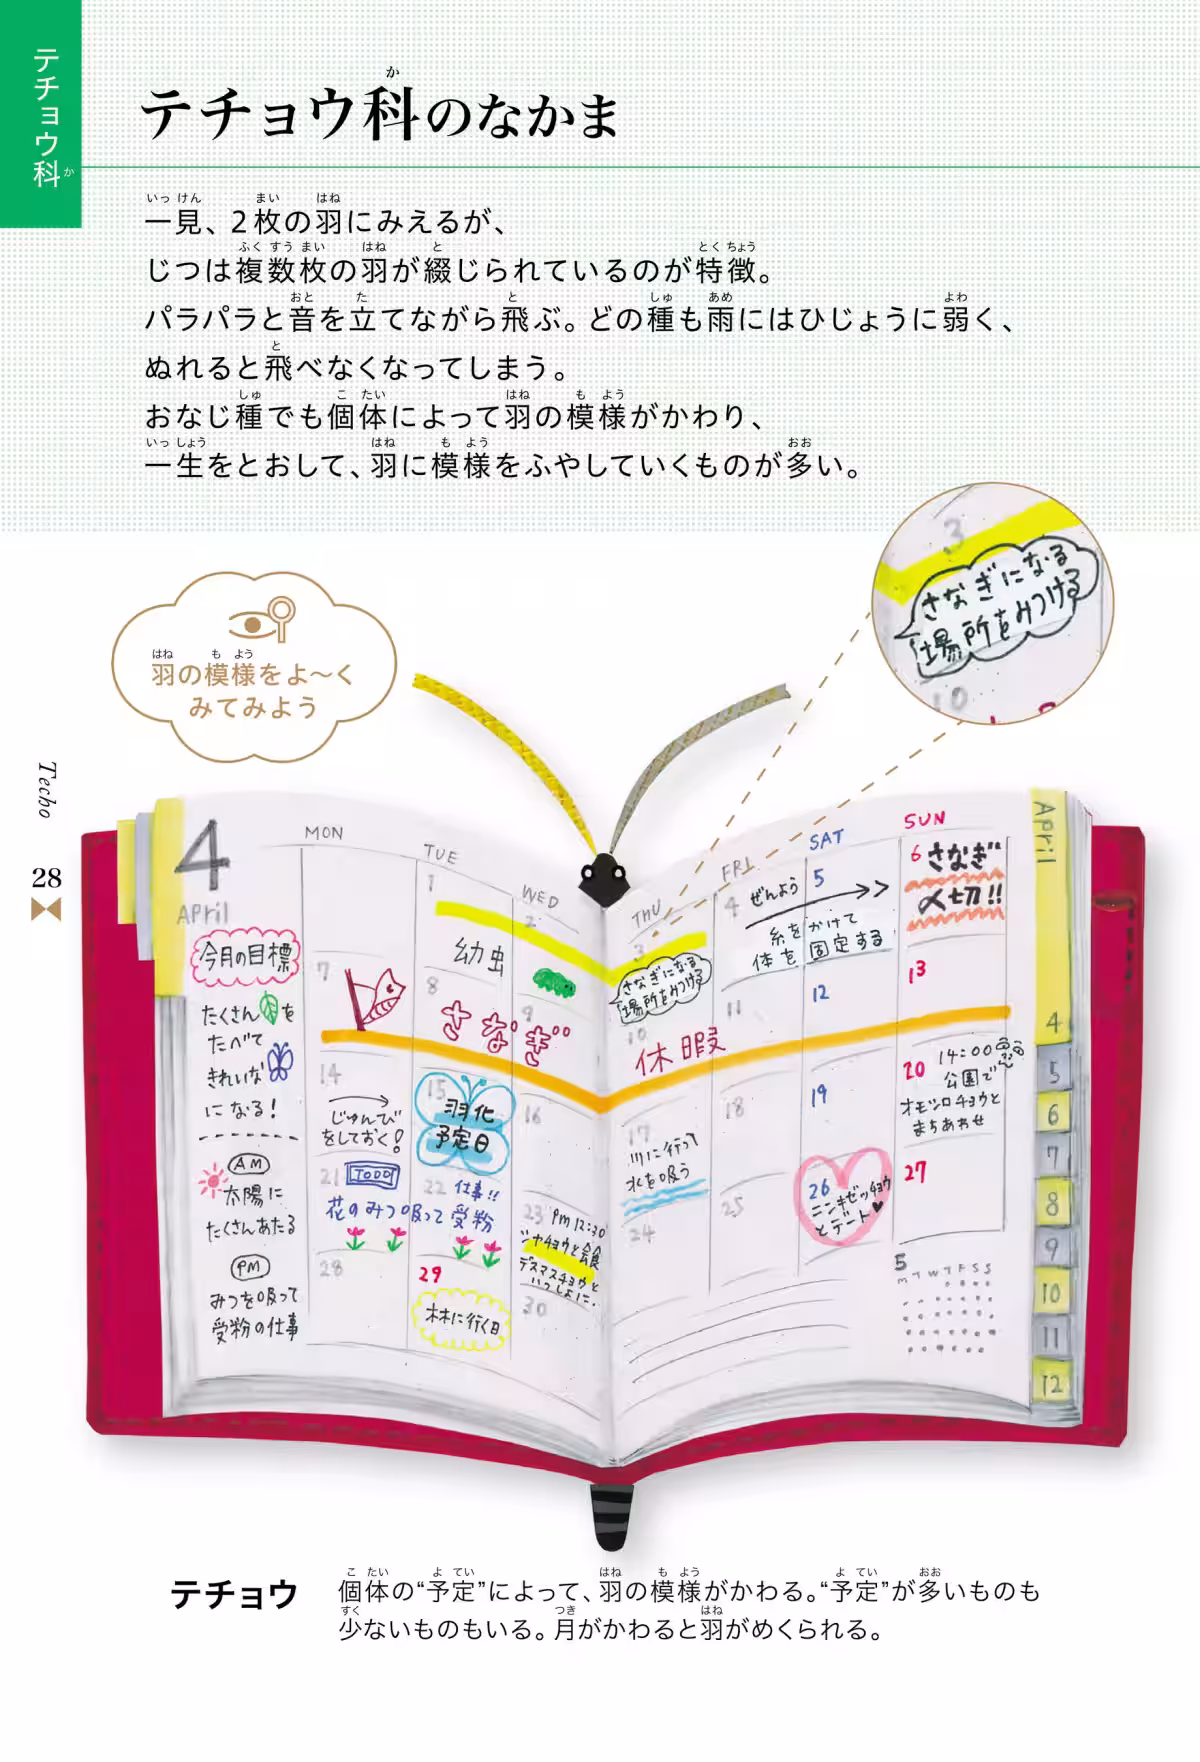 テチョウ科
か
テチョウ科のなかま
か
一見、2枚の羽にみえるが、
じつは複数枚の羽が綴じられているのが特徴。
パラパラと音を立てながら飛ぶ。どの種も雨にはひじょうに弱く、
ぬれると飛べなくなってしまう。
おなじ種でも個体によって羽の模様がかわり、
一生をとおして、羽に模様をふやしていくものが多い。
いっ けん まい はね
ふく すう まい はね と とく ちょう
おと た と しゅ あめ よわ
と
しゅ こ たい はね も よう
いっ しょう はね も よう おお
3
さなぎになる
場所をみつける
10
はね も よう
羽の模様をよ〜く
みてみよう
Techo
28
4
April
MON
TUE
WED
THU
FRI
SAT
SUN
April
今月の目標
たくさんを
たべて
きれいな
になる!
AM
太陽に
たくさんあたる
PM
みつを吸って
受粉の仕事
1
2
3
4
5
6
幼虫
さなぎになる
場所をみつける
ぜんよう
糸をかけて
体を固定する
さなぎ
〆切!!
7
8
9
10
11
12
13
さなぎ
休暇
14
じゅんび
をしておく!
15
羽化
予定日
16
17
川に行って
水を吸う
18
19
20
14:00
公園で
オモシロチョウと
まちあわせ
21
TODO
22
仕事!!
花のみつ吸って受粉
23
PM 12:30
シャチョウと会食
デスマスチョウと
いっしょに.
24
25
26
ニンキゼッチョウ
とデート♥
27
28
29
林に行く日
30
5
M T W T F S S
4
5
6
7
8
9
10
11
12
テチョウ
個体の“予定”によって、羽の模様がかわる。“予定”が多いものも
少ないものもいる。月がかわると羽がめくられる。
こ たい よ てい はね も よう よ てい おお
すく つき はね